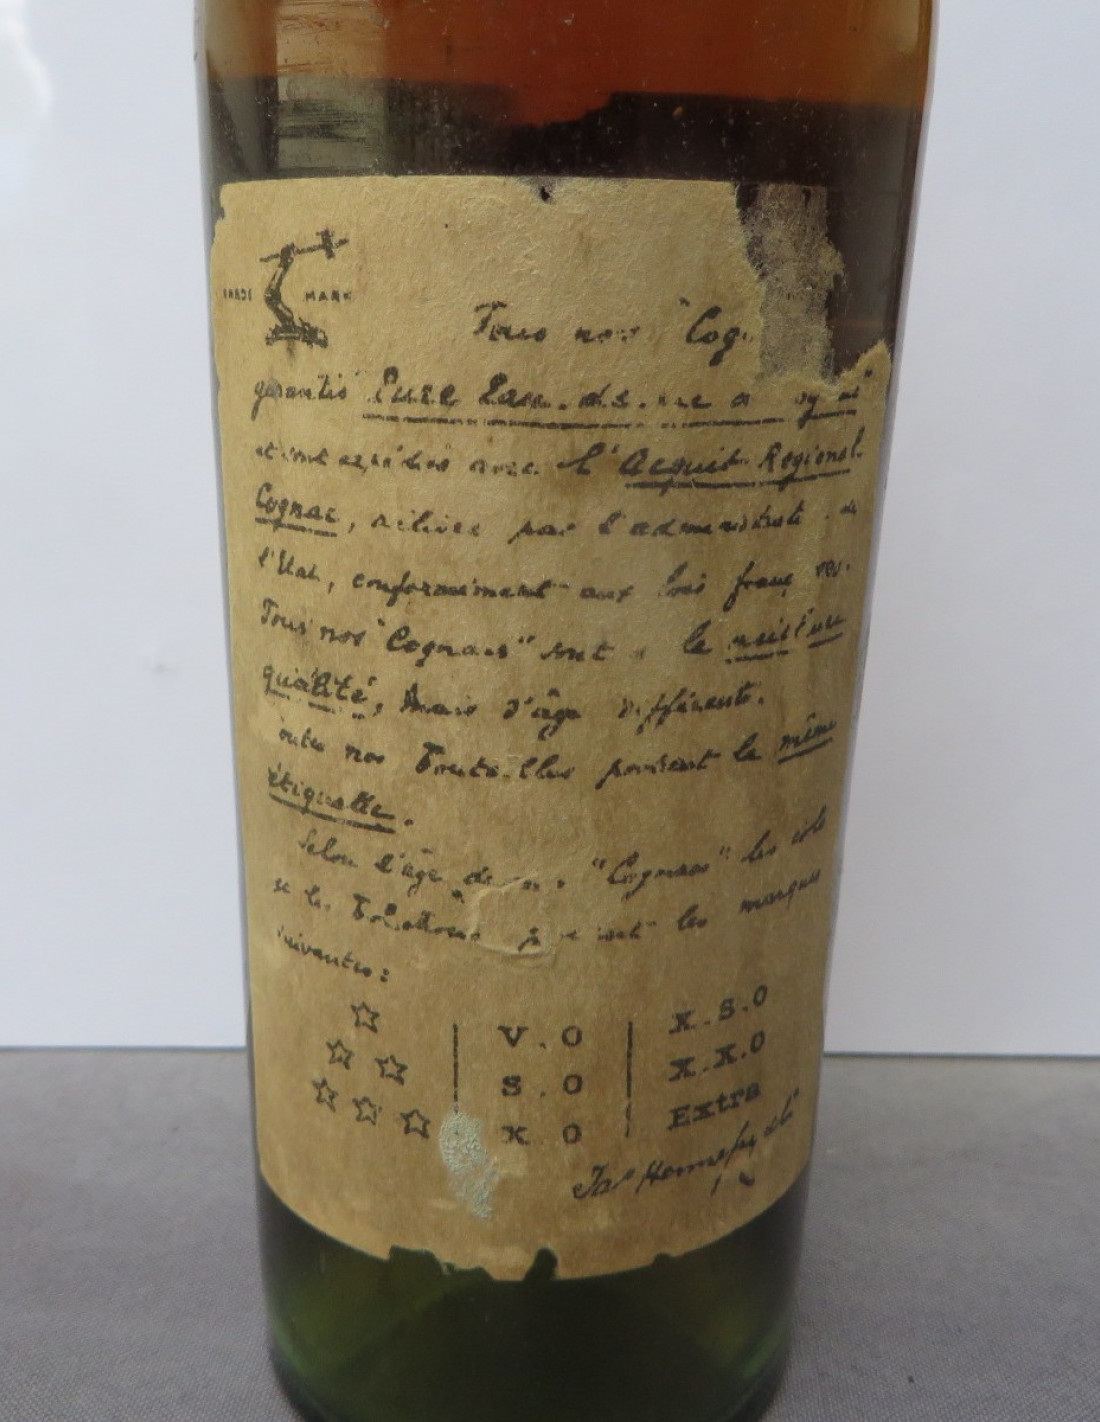 TRADE MARK
Tous nos "Cog
garantis Pure
et sont expédiés avec l'Acquit Regional
Cognac, par l'administrat
l'Etat, conformément aux lois franç
Tous nos "Cognacs" sont la meilleure
qualité, mais d'âge différents.
nos Bouteilles portent la même
étiquette.
Selon l'âge de "Cognacs"
les marques
suivantes:
☆ | V.O | X.S.O
☆☆ | S.O | X.X.O
☆☆☆ | X O | Extra
Jas Hennessy